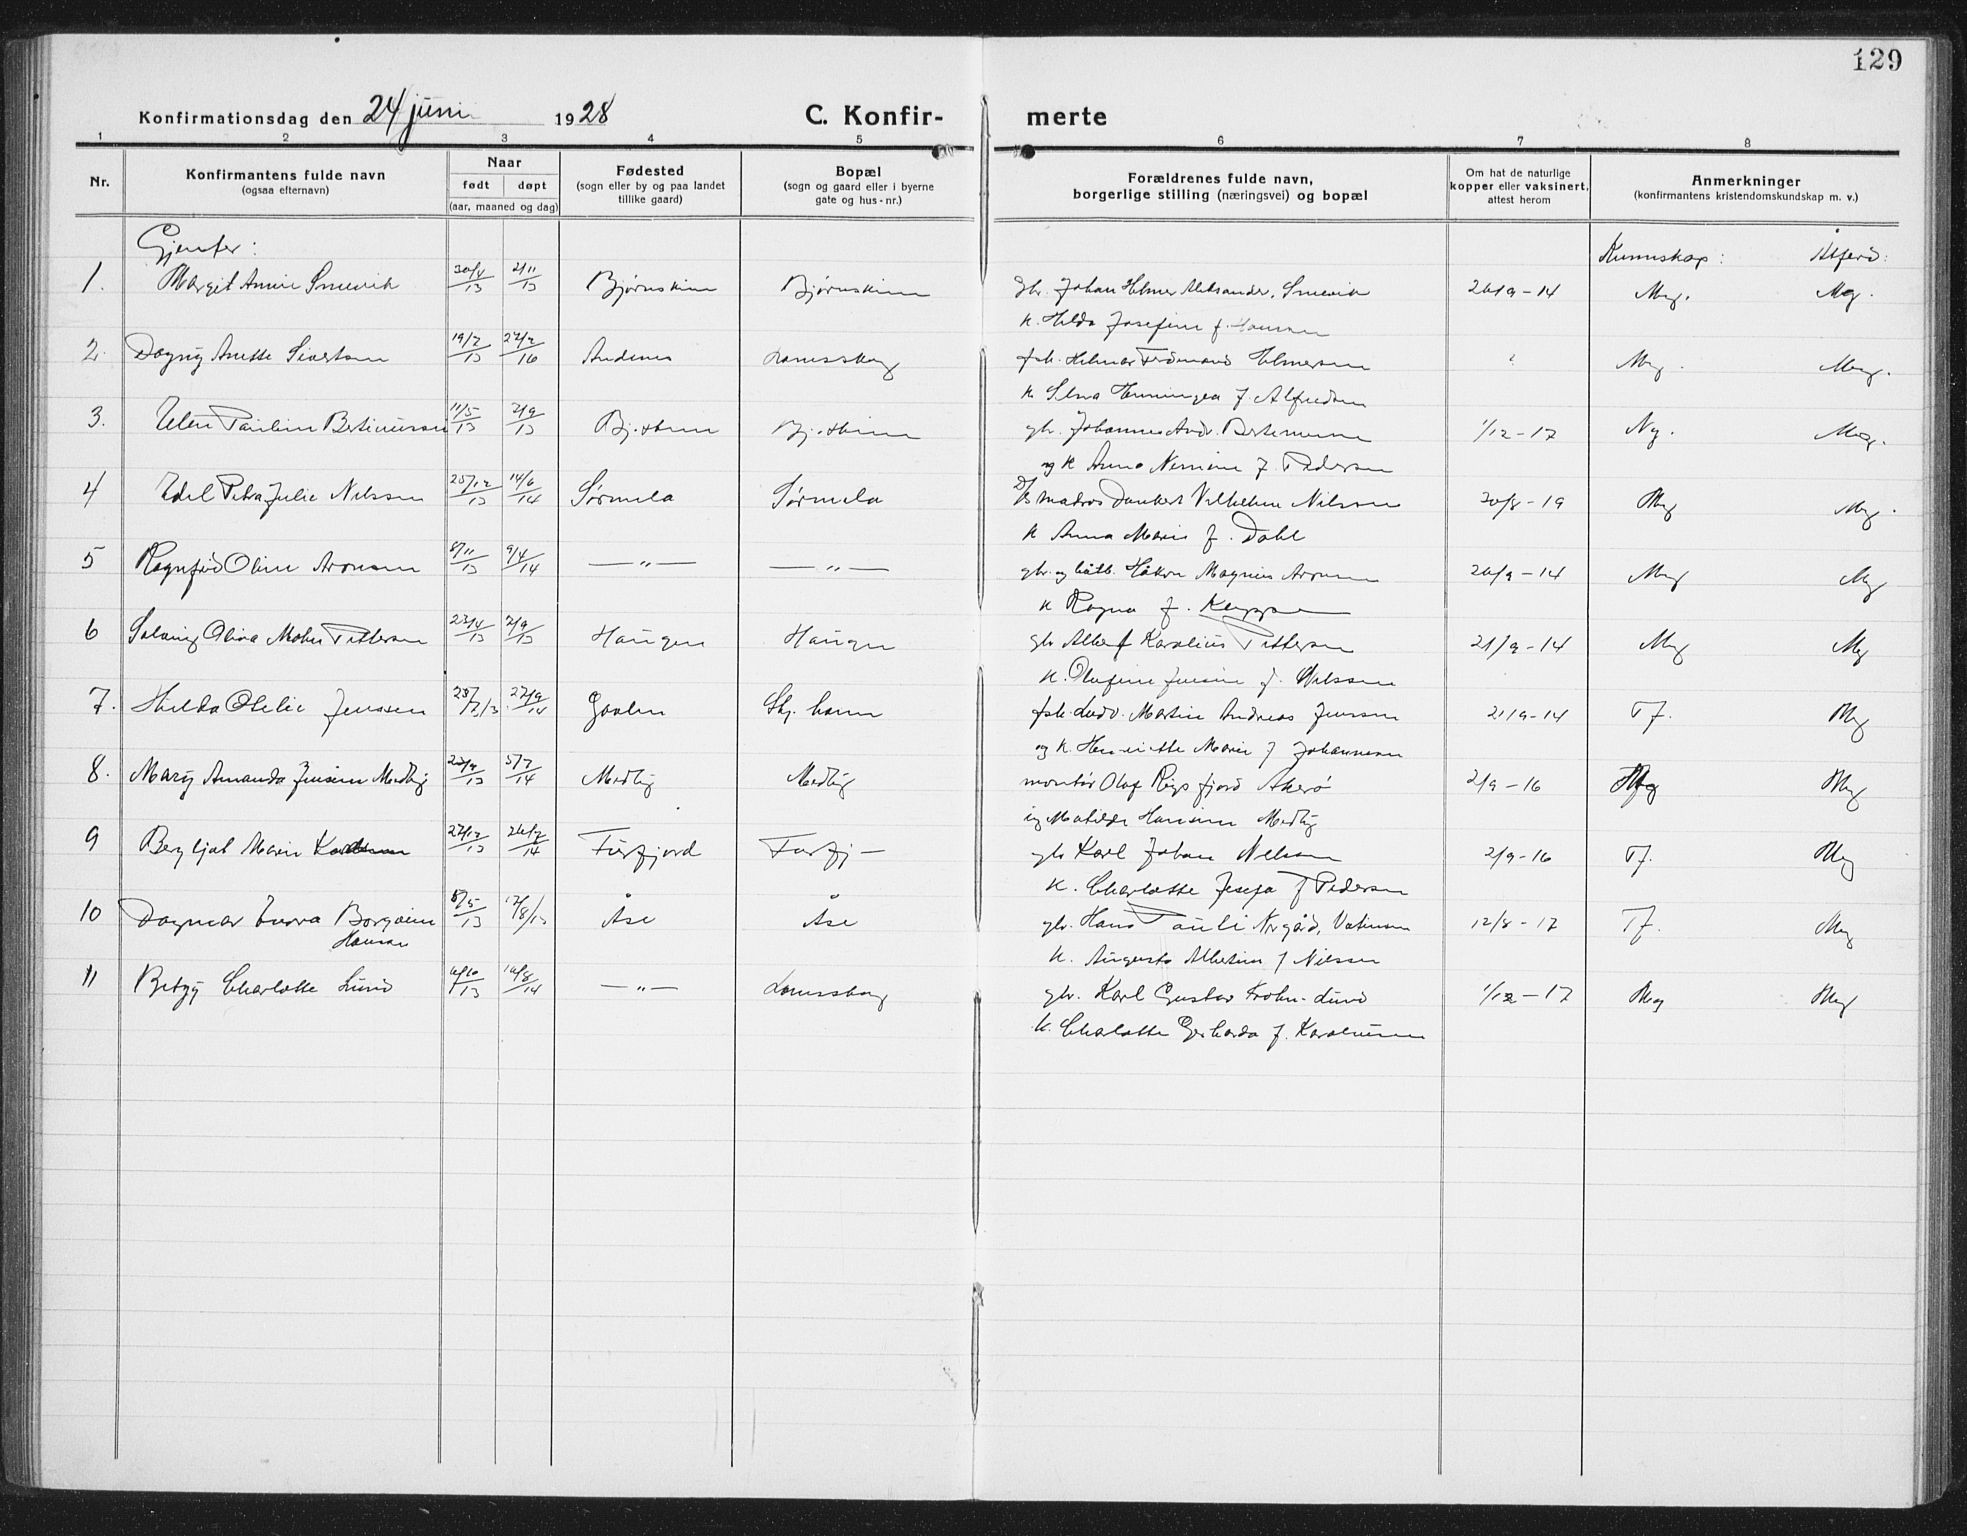 129
Konfirmationsdag den 24 juni 1928 C. Konfir- merte
1 2 3 4 5 6 7 8
Nr.
Konfirmantens fulde navn
(ogsaa efternavn)
Naar
født døpt
(aar, maaned og dag)
Fødested
(sogn eller by og paa landet
tillike gaard)
Bopæl
(sogn og gaard eller i byerne
gate og hus-nr.)
Forældrenes fulde navn,
borgerlige stilling (næringsvei) og bopæl
Om hat de naturlige
kopper eller vaksinert,
attest herom
Anmerkninger
(konfirmantens kristendomskundskap m. v.)
Gjenter: Kunnskap: Atferd:
1. Margit Annie Smevik 30/4 13 2/11 13 Bjørnskinn Bjørnskinn gbr. Johan Helmer Aleksander Smevik 20/9-14 Mg. Mg.
k. Hilda Josefine f. Hansen
2. Dagny Anette Sivertsen 19/7 13 27/2 16 Andenes fisk. Helmer Ferdinand Elmersen Mg. Mg.
k. Henningea f. Alfredsen
3. Pauline Bertinussen 11/5 13 7/9 13 Bj.skinn Bj.skinn gbr. Johannes Andr. Bertinussen 1/12-17 Ng. Mg.
og k Anna f. Pedersen
4 Edel Petra Julie Nilssen 25/12 13 14/6 14 Sørmela Sørmela Dankert Vilhelm Nilssen 20/8-19 Mg Mg.
k Anna Marie f. Dahl
5 Ragnfrid Oline Aronsen 8/11 13 9/4 14 —"— —"— gbr. og båtb. Håkon Magnus Aronsen 20/9-14 Mg Mg
k Ragna f.
6 Solveig Olina Pettersen 22/4 13 7/9 13 Haugen Haugen gbr Albert Karolius Pettersen 21/9-14 Mg Mg
k. Olufine Jensine f. Nilssen
7. Hilda Otelie Jenssen 13 27/9 14 Gavlen Skj. havn fisk. Ludv. Martin Andreas Jenssen 21/9-14 Tf. Mg
og k. Henriette Marie f Johannessen
8. Mary Amanda Jensine Medby 13 5/7 14 Medby Medby montør Olaf Rigsfjord Akerø 2/9-16 Mg Mg
ug Matilde Hansine Medby
9 Bergljot Marie 27/12 13 26/7 14 Forfjord Forfj— gbr Karl Johan Nilssen 2/9-16 Tf. Mg
k. Charlotte Josefa f Pedersen
10 Dagmar Borgheim 8/5 13 17/8/13 Åse Åse gbr. Hans Pauli Norgård, 12/8-17 Tf. Mg
Hansen
k. Augusta Albertine f Nilssen
11 Betzy Charlotte Lund 6/10 13 16/8 14 —"— gbr. Karl Gustav Krohn-Lund 1/12-17 Mg Mg
k. Charlotte Gerharda f. Karoliussen